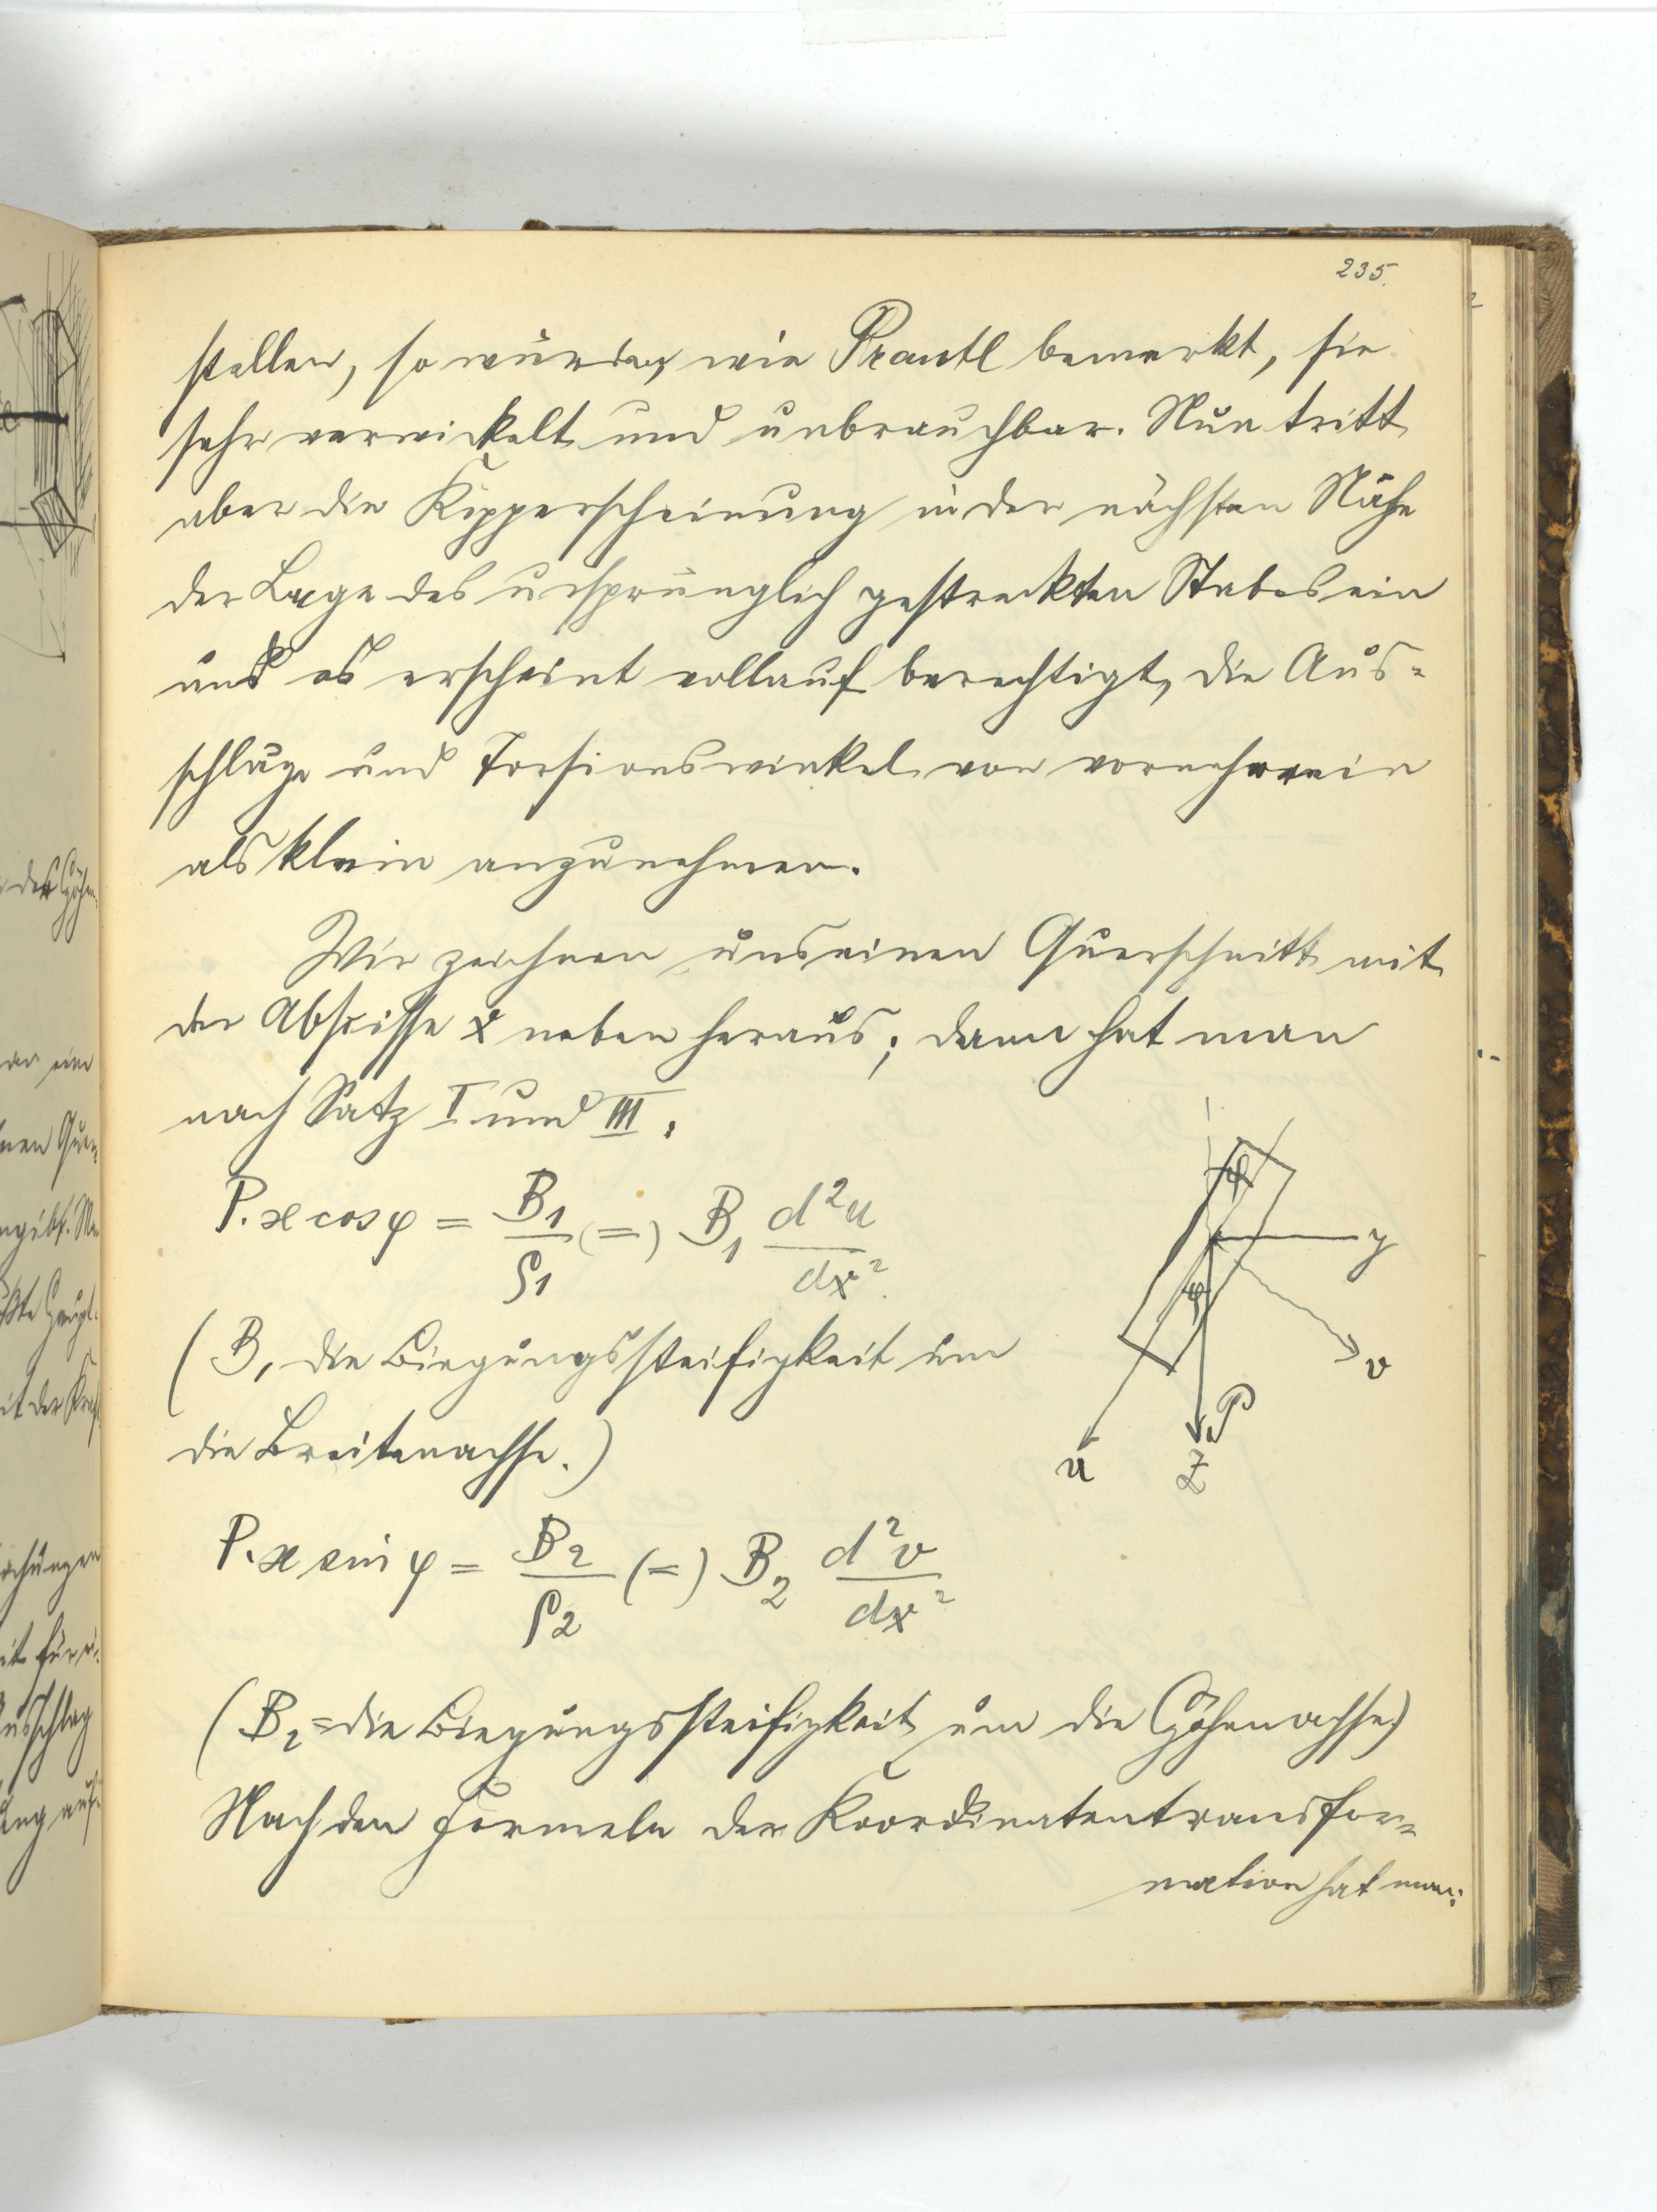 235.
stellen, so würden, wie Prantl bemerkt, sie
sehr verwickelt und unbrauchbar. Nun tritt
aber die Kipperscheinung in der nächsten Nähe
der Lage des ursprünglich gestreckten Stabes ein
und es erscheint vollauf berechtigt, die Aus-
schläge und Torsionswinkel von vorneherein
als klein anzunehmen.
Wir zeichnen uns einen Querschnitt mit
der Abscisse x neben heraus; dann hat man
nach Satz I und III:
P. x cos φ = B1/ρ1 (=) B1 d²u/dx²
φ
y
φ
v
P
u
Z
(B1 die Biegungssteifigkeit um
die Breitenachse.)
P. x sin φ = B2/ρ2 (=) B2 d²v/dx²
(B2 = die Biegungssteifigkeit um die Höhenachse)
Nach den Formeln der Koordinatentransfor-
mation hat man: